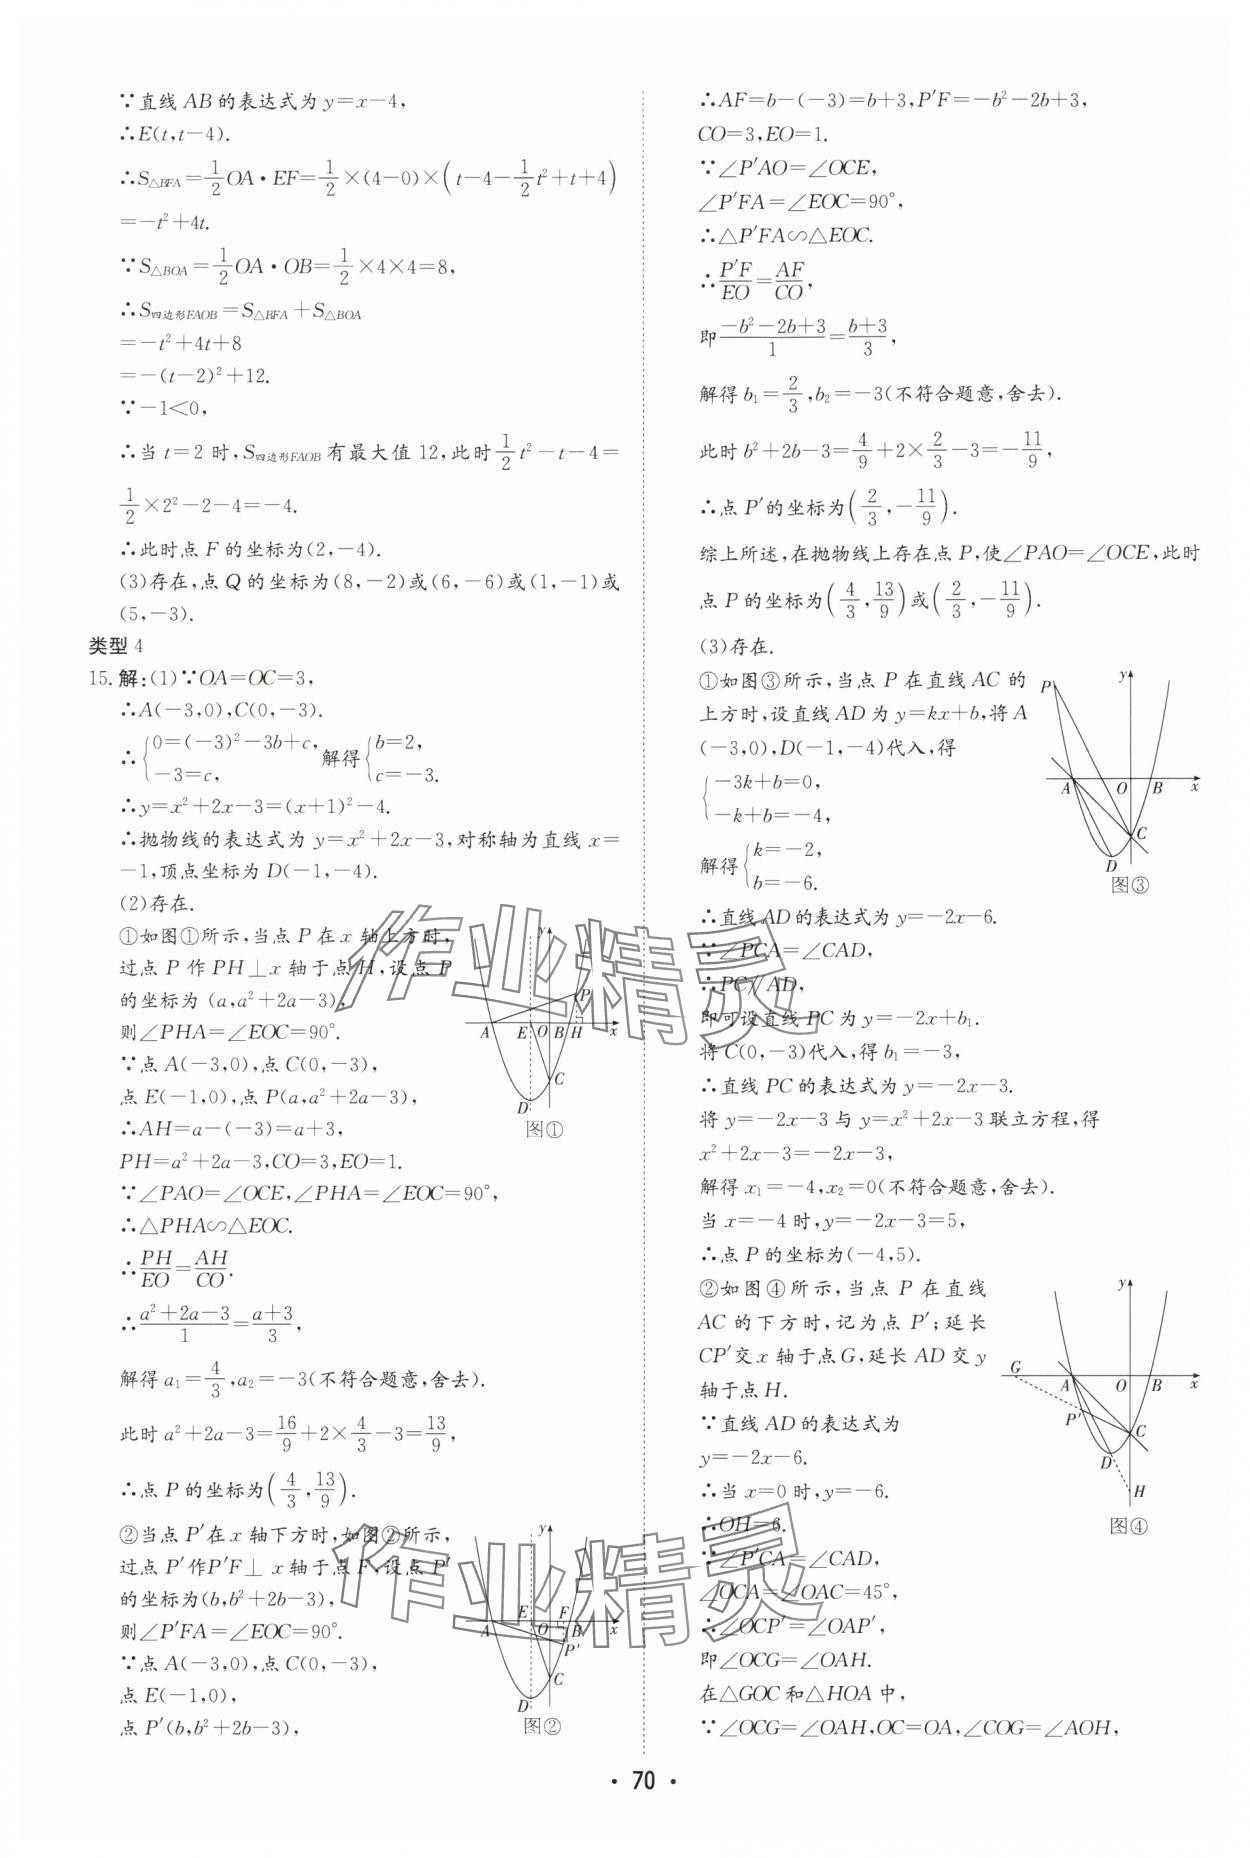 ∵直线 AB 的表达式为 y=x-4,
∴E(t,t-4).
∴S△BFA=1/2 OA·EF=1/2×(4-0)×(t-4-1/2 t²+t+4)
=-t²+4t.
∵S△BOA=1/2 OA·OB=1/2×4×4=8,
∴S四边形FAOB=S△BFA+S△BOA
=-t²+4t+8
=-(t-2)²+12.
∵-1<0,
∴当 t=2 时,S四边形FAOB有最大值 12,此时 1/2 t²-t-4=
1/2×2²-2-4=-4.
∴此时点 F 的坐标为(2,-4).
(3)存在,点 Q 的坐标为(8,-2)或(6,-6)或(1,-1)或
(5,-3).
类型 4
15.解:(1)∵OA=OC=3,
∴A(-3,0),C(0,-3).
∴{0=(-3)²-3b+c, -3=c, 解得{b=2, c=-3.
∴y=x²+2x-3=(x+1)²-4.
∴抛物线的表达式为 y=x²+2x-3,对称轴为直线 x=
-1,顶点坐标为 D(-1,-4).
(2)存在.
①如图①所示,当点 P 在 x 轴上方时,
过点 P 作 PH⊥x 轴于点 H,设点 P
的坐标为 (a,a²+2a-3),
则∠PHA=∠EOC=90°.
∵点 A(-3,0),点 C(0,-3),
点 E(-1,0),点 P(a,a²+2a-3),
∴AH=a-(-3)=a+3,
PH=a²+2a-3,CO=3,EO=1.
∵∠PAO=∠OCE,∠PHA=∠EOC=90°,
∴△PHA∽△EOC.
∴PH/EO=AH/CO.
∴(a²+2a-3)/1=(a+3)/3,
解得 a₁=4/3,a₂=-3(不符合题意,舍去).
此时 a²+2a-3=16/9+2×4/3-3=13/9,
∴点 P 的坐标为(4/3,13/9).
②当点 P′在 x 轴下方时,如图②所示,
过点 P′作P′F⊥ x 轴于点 F,设点 P′
的坐标为(b,b²+2b-3),
则∠P′FA=∠EOC=90°.
∵点 A(-3,0),点 C(0,-3),
点 E(-1,0),
点 P′(b,b²+2b-3),
y
P
A E O B H x
C
D
图①
y
E F
A O B x
P′
C
D
图②
∴AF=b-(-3)=b+3,P′F=-b²-2b+3,
CO=3,EO=1.
∵∠P′AO=∠OCE,
∠P′FA=∠EOC=90°,
∴△P′FA∽△EOC.
∴P′F/EO=AF/CO,
即(-b²-2b+3)/1=(b+3)/3,
解得 b₁=2/3,b₂=-3(不符合题意,舍去).
此时 b²+2b-3=4/9+2×2/3-3=-11/9,
∴点 P′的坐标为(2/3,-11/9).
综上所述,在抛物线上存在点 P,使∠PAO=∠OCE,此时
点 P 的坐标为(4/3,13/9)或(2/3,-11/9).
(3)存在.
①如图③所示,当点 P 在直线 AC 的
上方时,设直线 AD 为 y=kx+b,将 A
(-3,0),D(-1,-4)代入,得
{-3k+b=0,
-k+b=-4,
解得{k=-2, b=-6.
∴直线 AD 的表达式为 y=-2x-6.
∵∠PCA=∠CAD,
∴PC∥AD,
即可设直线 PC 为 y=-2x+b₁.
将 C(0,-3)代入,得 b₁=-3,
∴直线 PC 的表达式为 y=-2x-3.
将 y=-2x-3 与 y=x²+2x-3 联立方程,得
x²+2x-3=-2x-3,
解得 x₁=-4,x₂=0(不符合题意,舍去).
当 x=-4 时,y=-2x-3=5,
∴点 P 的坐标为(-4,5).
②如图④所示,当点 P 在直线
AC 的下方时,记为点 P′;延长
CP′交 x 轴于点 G,延长 AD 交 y
轴于点 H.
∵直线 AD 的表达式为
y=-2x-6.
∴当 x=0 时,y=-6.
∴OH=6.
∵∠P′CA=∠CAD,
∠OCA=∠OAC=45°,
∴∠OCP′=∠OAP′,
即∠OCG=∠OAH.
在△GOC 和△HOA 中,
∵∠OCG=∠OAH,OC=OA,∠COG=∠AOH,
y
P
A O B x
C
D
图③
y
G
A O B x
P′
C
D
H
图④
作业精灵
作业精灵
· 70 ·